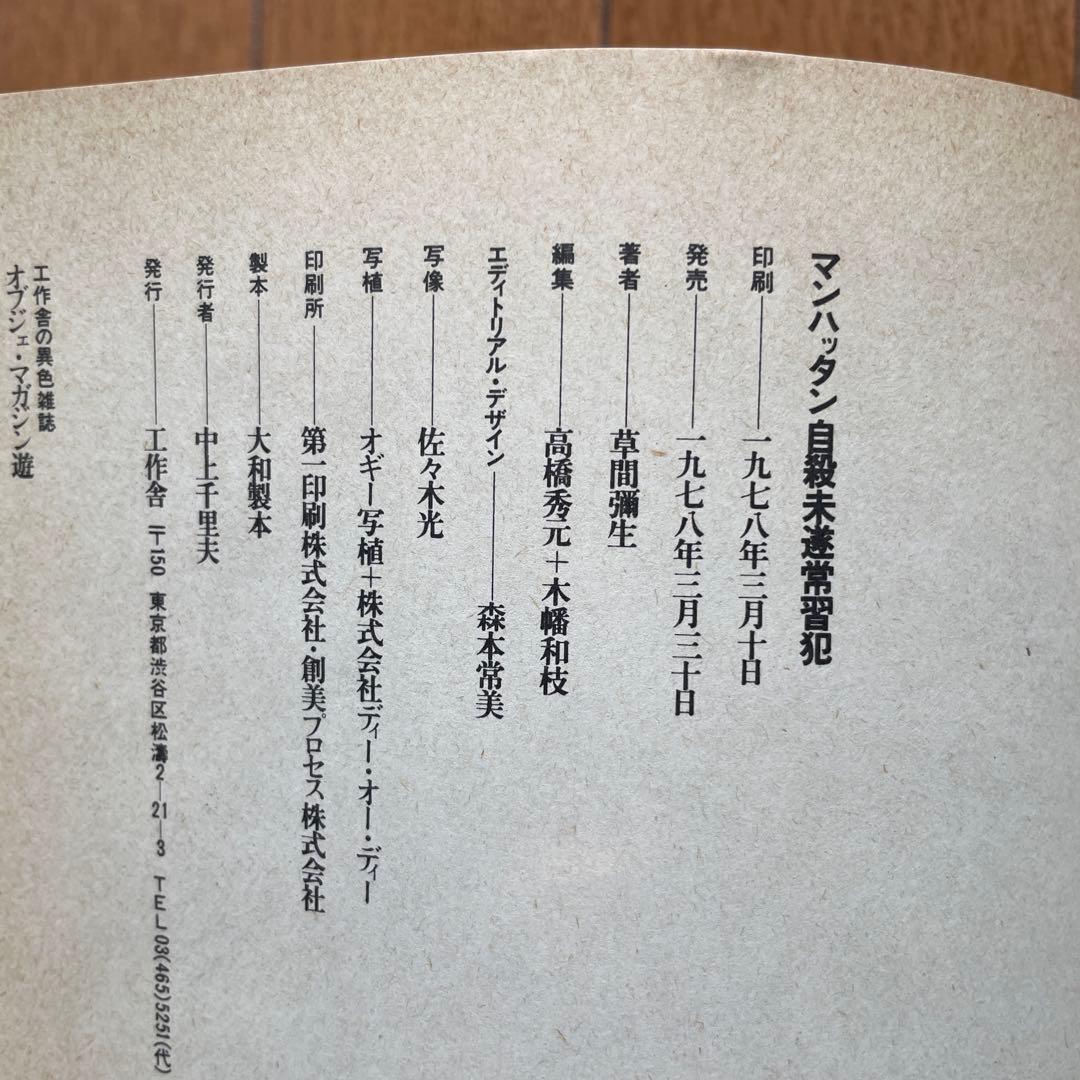 マンハッタン自殺未遂常習犯
印刷──一九七八年三月十日
発売──一九七八年三月三十日
著者──草間彌生
編集──高橋秀元＋木幡和枝
エディトリアル・デザイン──森本常美
写像──佐々木光
写植──オギー写植＋株式会社ディー・オー・ディー
印刷所──第一印刷株式会社・創美プロセス株式会社
製本──大和製本
発行者──中上千里夫
発行──工作舎 〒150 東京都渋谷区松濤2─21─3 TEL03(465)5251(代)
工作舎の異色雑誌
オブジェ・マガジン遊